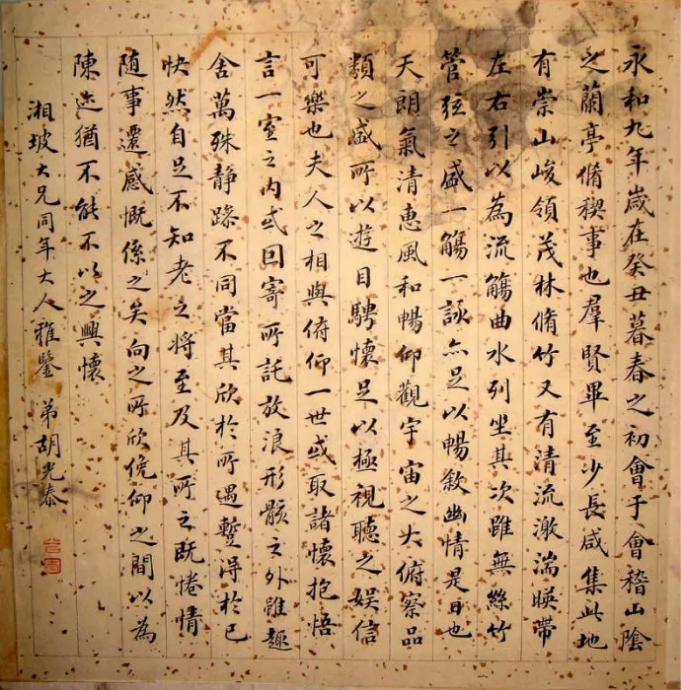 永和九年歲在癸丑暮春之初會于會稽山陰
之蘭亭脩稧事也羣賢畢至少長咸集此地
有崇山峻領茂林脩竹又有清流激湍暎帶
左右引以為流觴曲水列坐其次雖無絲竹
管弦之盛一觴一詠亦足以暢敘幽情是日也
天朗氣清惠風和暢仰觀宇宙之大俯察品
類之盛所以遊目騁懷足以極視聽之娛信
可樂也夫人之相與俯仰一世或取諸懷抱悟
言一室之内或因寄所託放浪形骸之外雖趣
舍萬殊静躁不同當其欣於所遇蹔得於己
快然自足不知老之将至及其所之既惓情
随事遷感慨係之矣向之所欣俛仰之閒以為
陳迹猶不能不以之興懷
湘坡大兄同年大人雅鑒 弟胡光泰